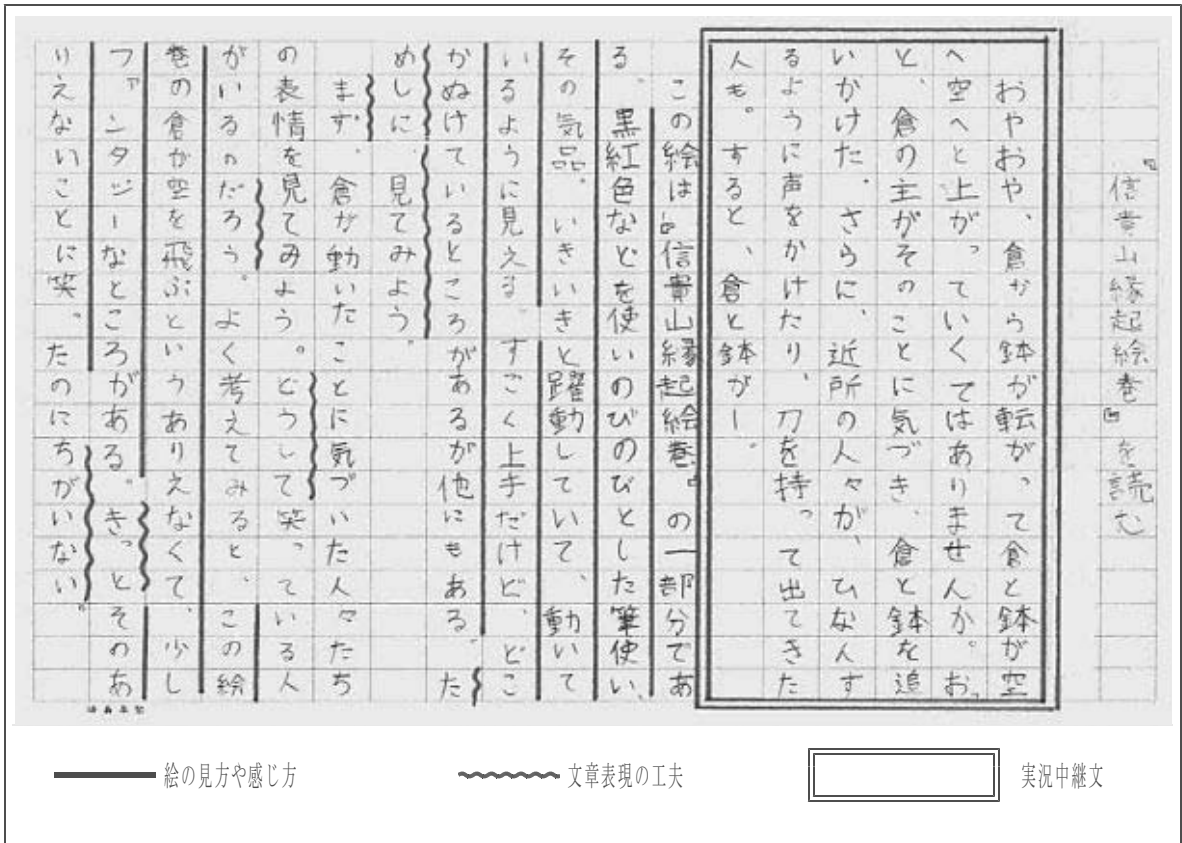 『信貴山縁起絵巻』を読む
おやおや、倉から鉢が転がって倉と鉢が空
へ空へと上がっていくてはありませんか。おっ
と、倉の主がそのことに気づき、倉と鉢を追
いかけた。さらに、近所の人々が、ひなんす
るように声をかけたり、刀を持って出てきた
人も。すると、倉と鉢がー。
この絵は『信貴山縁起絵巻』の一部分であ
る。黒紅色などを使いのびのびとした筆使い、
その気品。いきいきと躍動していて、動いて
いるように見える。すごく上手だけど、どこ
かぬけているところがあるが他にもある。た
めしに、見てみよう。
まず、倉が動いたことに気づいた人々たち
の表情を見てみよう。どうして笑っている人
がいるのだろう。よく考えてみると、この絵
巻の倉が空を飛ぶというありえなくて、少し
ファンタジーなところがある。きっとそのあ
りえないことに笑ったのにちがいない。
絵の見方や感じ方
文章表現の工夫
実況中継文